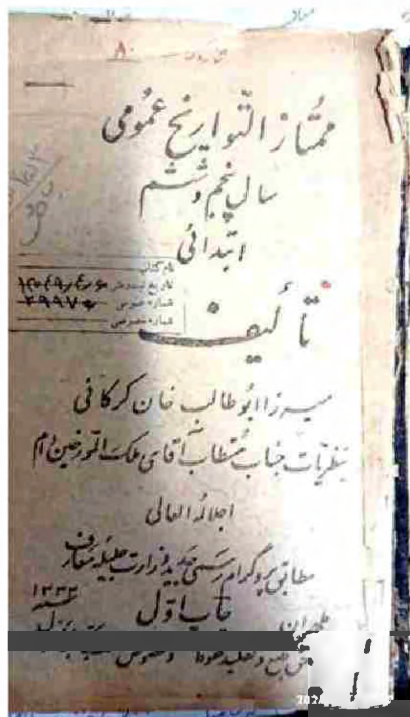 ممتاز التواریخ عمومی
سال پنجم و ششم
ابتدائی
نام کتاب
تاریخ ثبت دفتر
شماره عمومی ۲۹۹۷۰
شماره خصوصی
تألیف
میرزا ابوطالب خان کرکانی
بنظریات جناب مستطاب آقای ملک المورخین دام
اجلاله العالی
مطابق پروگرام رسمی جدید وزارت جلیله معارف
طهران چاپ اوّل ۱۳۳۳
حق طبع و تقلید محفوظ و مخصوص